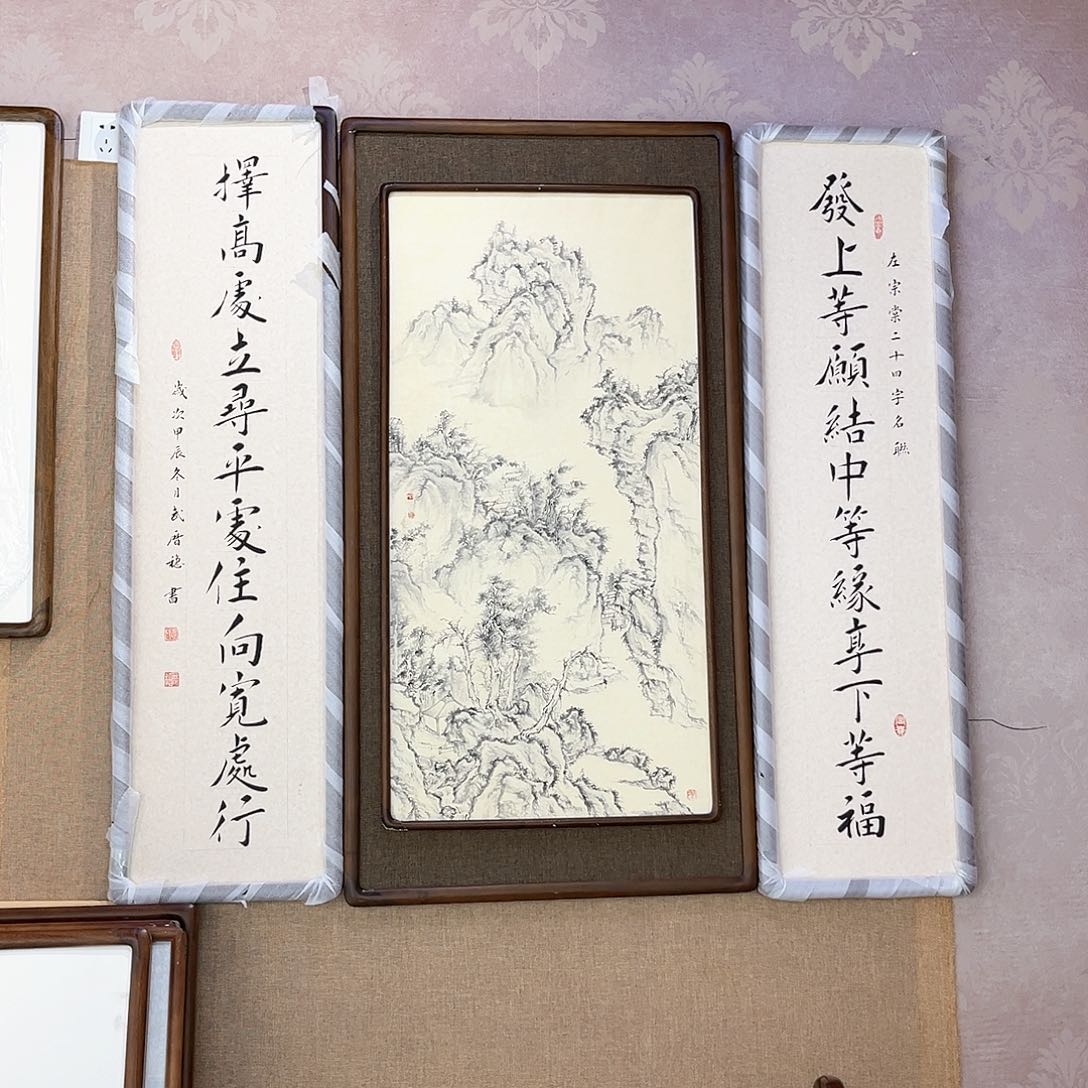 發上等願結中等緣享下等福
左宗棠二十四字名聯
擇高處立尋平處住向寬處行
歲次甲辰冬月武曆穂書